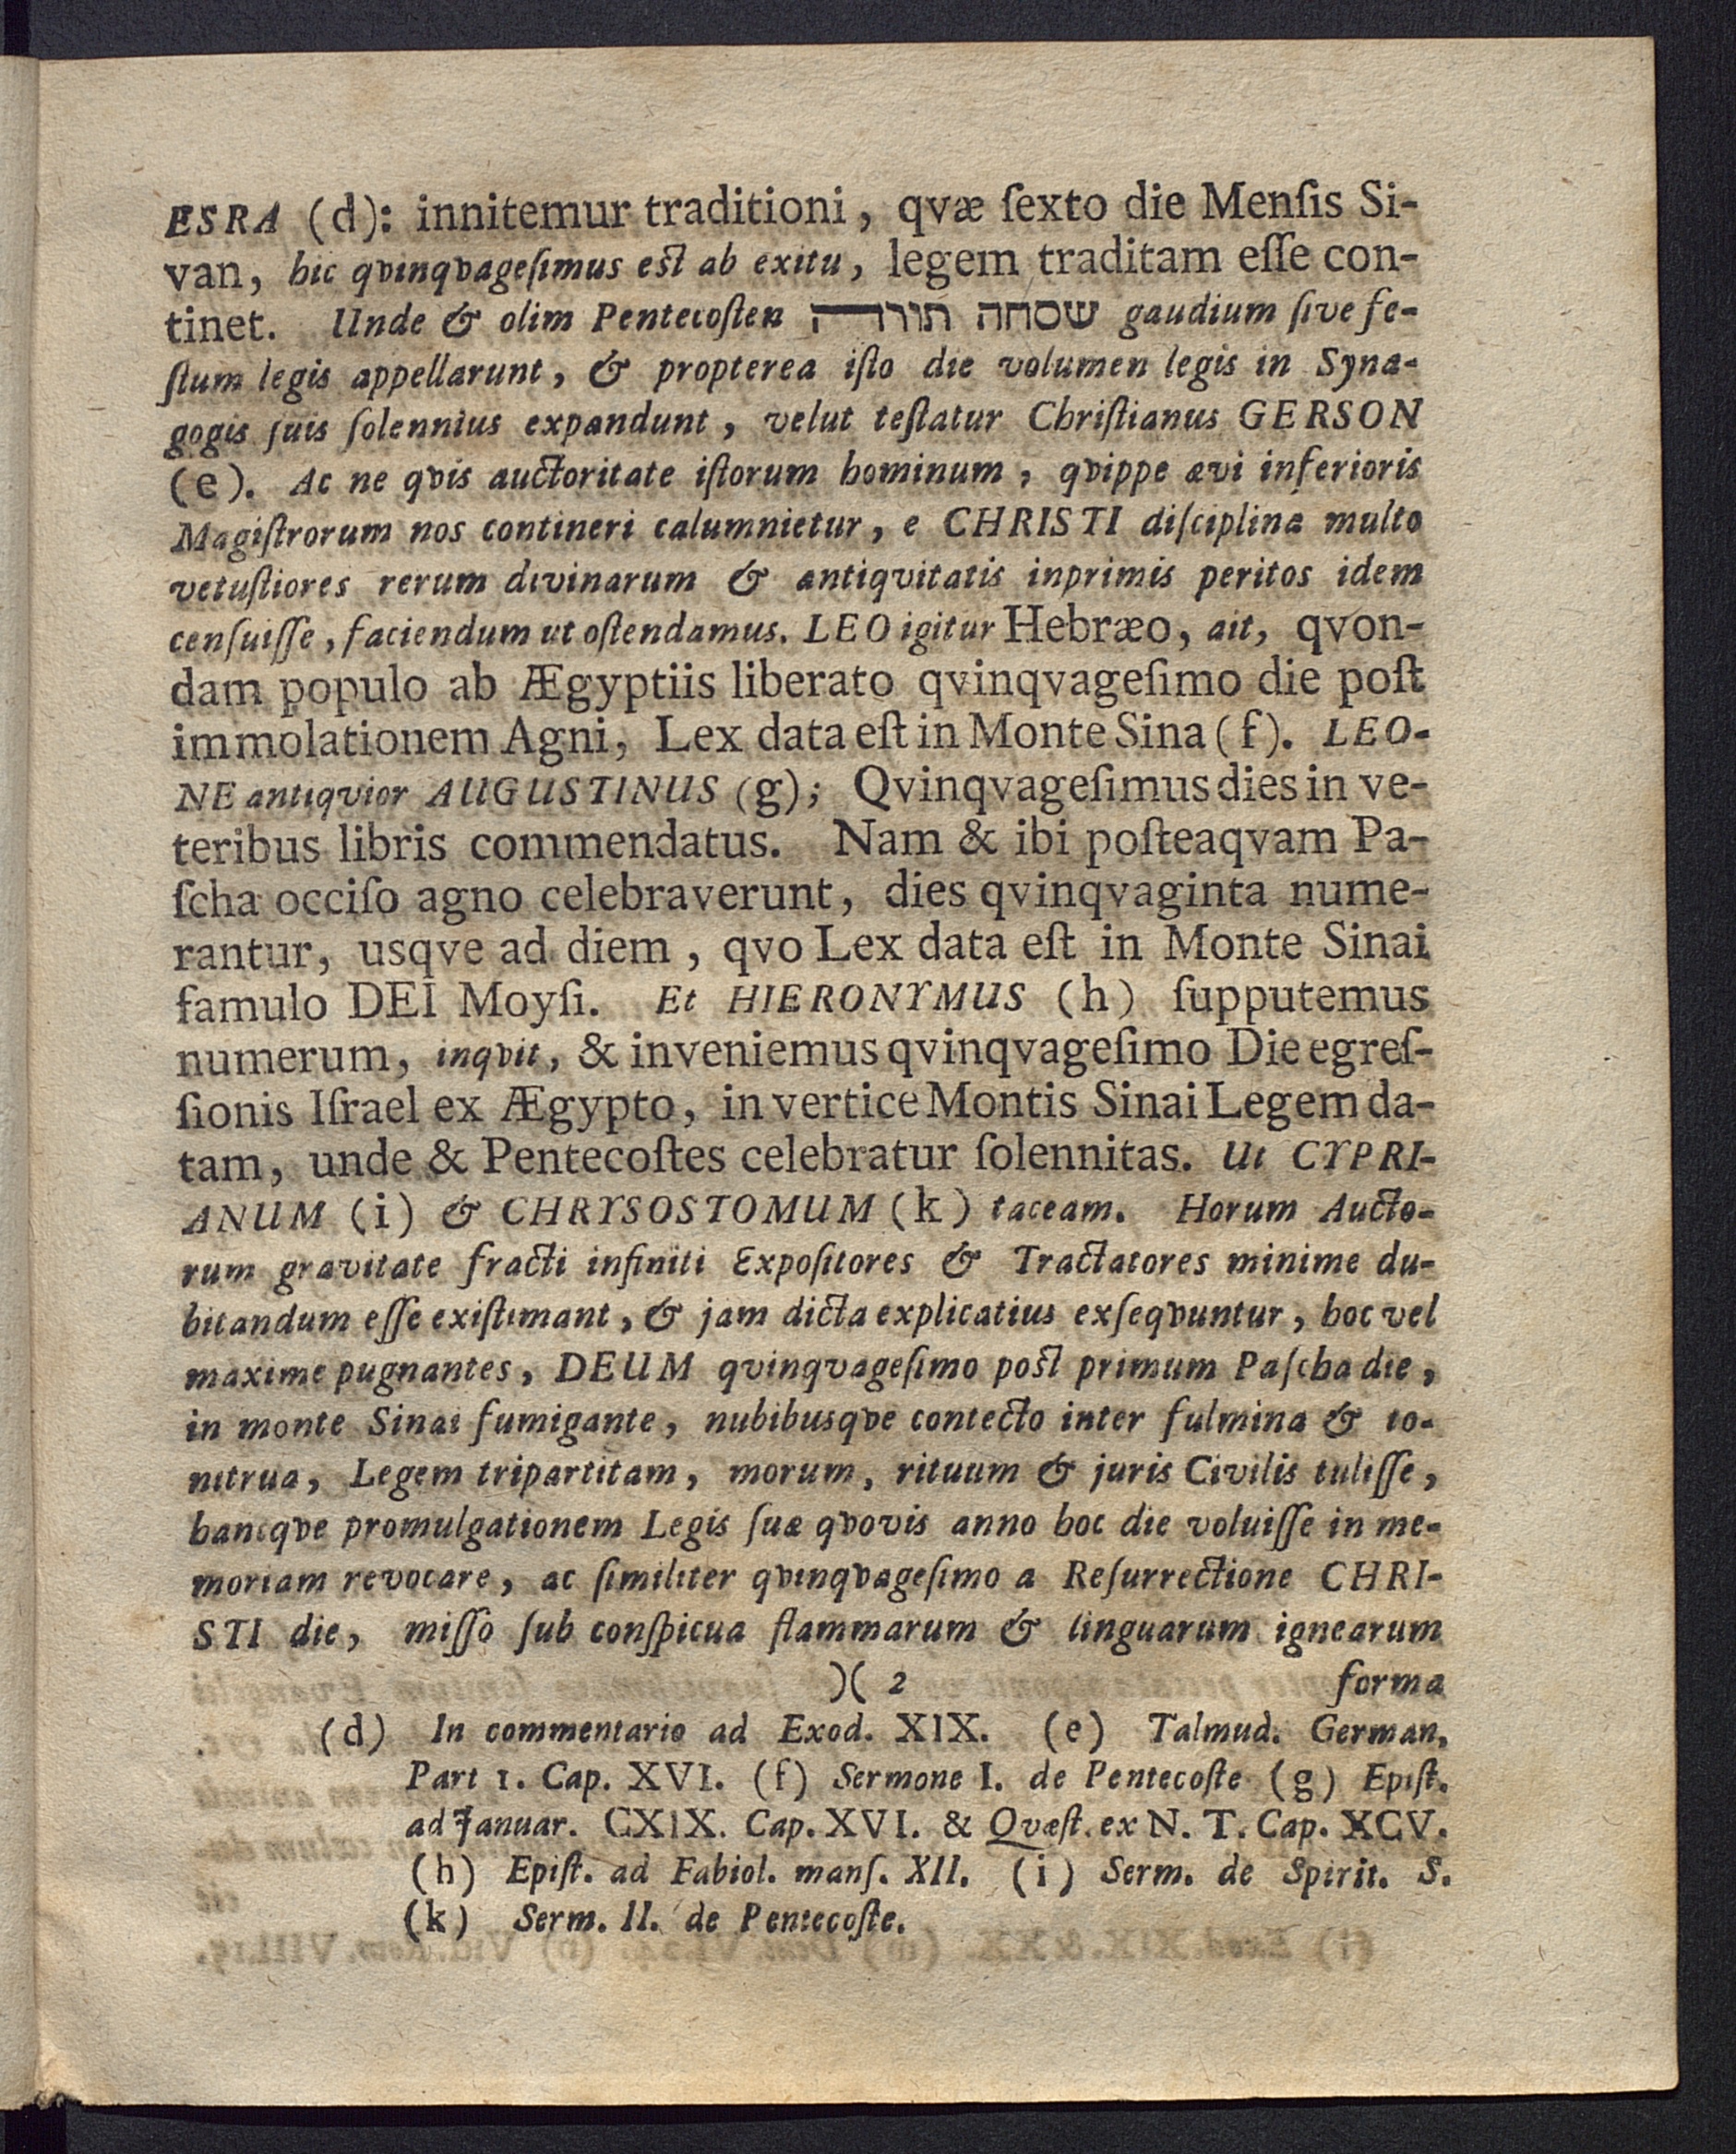 ESRA (d): innitemur traditioni, qvæ ſexto die Menſis Si-
van, hic qvinqvageſimus eſt ab exitu, legem traditam eſſe con-
tinet. Unde & olim Pentecoſten שסחה תורה gaudium ſive fe-
ſtum legis appellarunt, & propterea iſto die volumen legis in Syna-
gogis ſuis ſolennius expandunt, velut teſtatur Chriſtianus GERSON
(e). Ac ne qvis auctoritate iſtorum hominum, qvippe ævi inferioris
Magiſtrorum nos contineri calumnietur, e CHRISTI diſciplina multo
vetuſtiores rerum divinarum & antiqvitatis inprimis peritos idem
cenſuiſſe, faciendum ut oſtendamus. LEO igitur Hebræo, ait, qvon-
dam populo ab Ægyptiis liberato qvinqvageſimo die poſt
immolationem Agni, Lex data eſt in Monte Sina (f). LEO-
NE antiqvior AUGUSTINUS (g); Qvinqvageſimus dies in ve-
teribus libris commendatus. Nam & ibi poſteaqvam Pa-
ſcha occiſo agno celebraverunt, dies qvinqvaginta nume-
rantur, usqve ad diem, qvo Lex data eſt in Monte Sinai
famulo DEI Moyſi. Et HIERONYMUS (h) ſupputemus
numerum, inqvit, & inveniemus qvinqvageſimo Die egreſ-
ſionis Iſrael ex Ægypto, in vertice Montis Sinai Legem da-
tam, unde & Pentecoſtes celebratur ſolennitas. Ut CYPRI-
ANUM (i) & CHRYSOSTOMUM (k) taceam. Horum Aucto-
rum gravitate fracti infiniti Expoſitores & Tractatores minime du-
bitandum eſſe exiſtimant, & jam dicta explicatius exſeqvuntur, hoc vel
maxime pugnantes, DEUM qvinqvageſimo poſt primum Paſcha die,
in monte Sinai fumigante, nubibusqve contecto inter fulmina & to-
nitrua, Legem tripartitam, morum, rituum & juris Civilis tuliſſe,
hancqve promulgationem Legis ſuæ qvovis anno hoc die voluiſſe in me-
moriam revocare, ac ſimiliter qvinqvageſimo a Reſurrectione CHRI-
STI die, miſſo ſub conſpicua flammarum & linguarum ignearum
)( 2 forma
(d) In commentario ad Exod. XIX. (e) Talmud. German,
Part 1. Cap. XVI. (f) Sermone I. de Pentecoſte (g) Epiſt.
ad Januar. CXIX. Cap. XVI. & Qvæſt. ex N. T. Cap. XCV.
(h) Epiſt. ad Fabiol. manſ. XII. (i) Serm. de Spirit. S.
(k) Serm. II. de Pentecoſte.